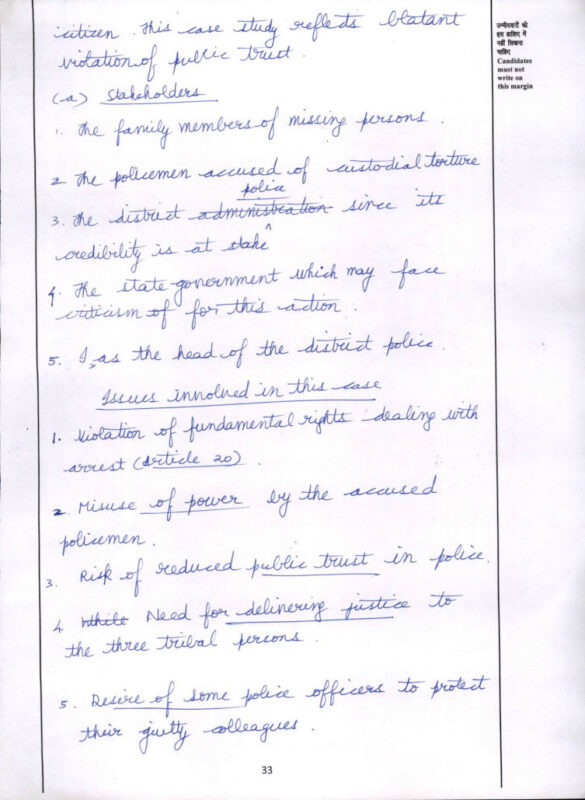 citizen. This case study reflects blatant
violation of public trust.
(a) Stakeholders
1. The family members of missing persons.
2. The policemen accused of custodial torture
police
3. The district administration since its
credibility is at stake
4. The state government which may face
criticism of for this action.
5. I, as the head of the district police.
Issues involved in this case
1. Violation of fundamental rights dealing with
arrest (Article 20).
2. Misuse of power by the accused
policemen.
3. Risk of reduced public trust in police.
4. While Need for delivering justice to
the three tribal persons.
5. Desire of some police officers to protect
their guilty colleagues.
33
उम्मीदवारों को
इस हाशिए में
नहीं लिखना
चाहिए
Candidates
must not
write on
this margin